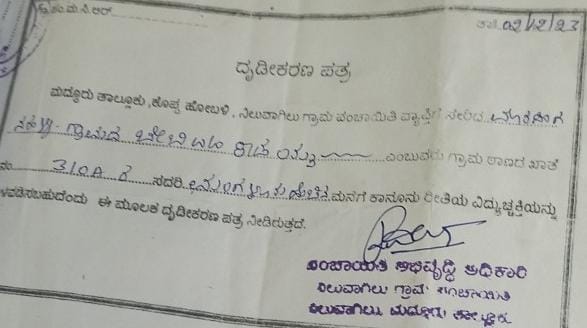 ತಾ: 02/12/23
ದೃಢೀಕರಣ ಪತ್ರ
ಮದ್ದೂರು ತಾಲ್ಲೂಕು, ಕೊಪ್ಪ ಹೋಬಳಿ, ನಿಲುವಾಗಿಲು ಗ್ರಾಮ ಪಂಚಾಯಿತಿ ವ್ಯಾಪ್ತಿಗೆ ಸೇರಿದ
ಗ್ರಾಮದ ಎಂಬುವರು ಗ್ರಾಮ ಠಾಣದ ಖಾತೆ
ನಂ 310A ರ ಸದರಿ ಮನೆಗೆ ಕಾನೂನು ರೀತಿಯ ವಿದ್ಯುಚ್ಛಕ್ತಿಯನ್ನು
ಳವಡಿಸಬಹುದೆಂದು ಈ ಮೂಲಕ ದೃಢೀಕರಣ ಪತ್ರ ನೀಡಿರುತ್ತದೆ.
ಪಂಚಾಯಿತಿ ಅಭಿವೃದ್ಧಿ ಅಧಿಕಾರಿ
ನಿಲುವಾಗಿಲು ಗ್ರಾಮ ಪಂಚಾಯಿತಿ
ನಿಲುವಾಗಿಲು, ಮದ್ದೂರು ತಾಲ್ಲೂಕು